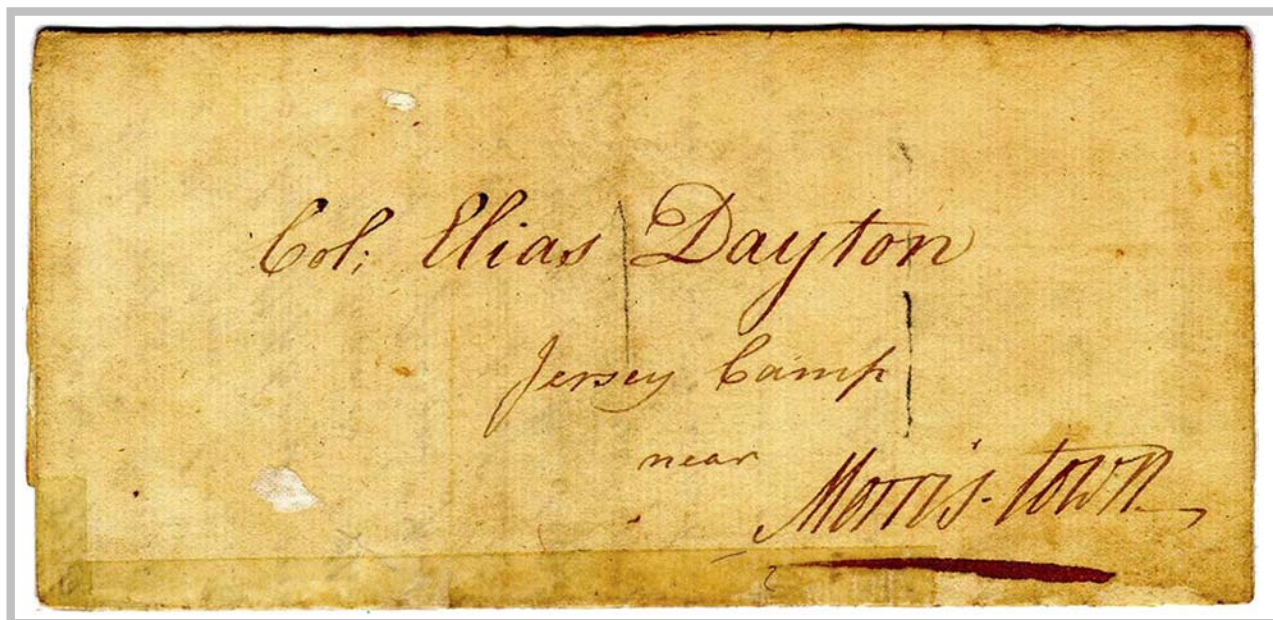 Col: Elias Dayton
Jersey Camp
near Morris-town